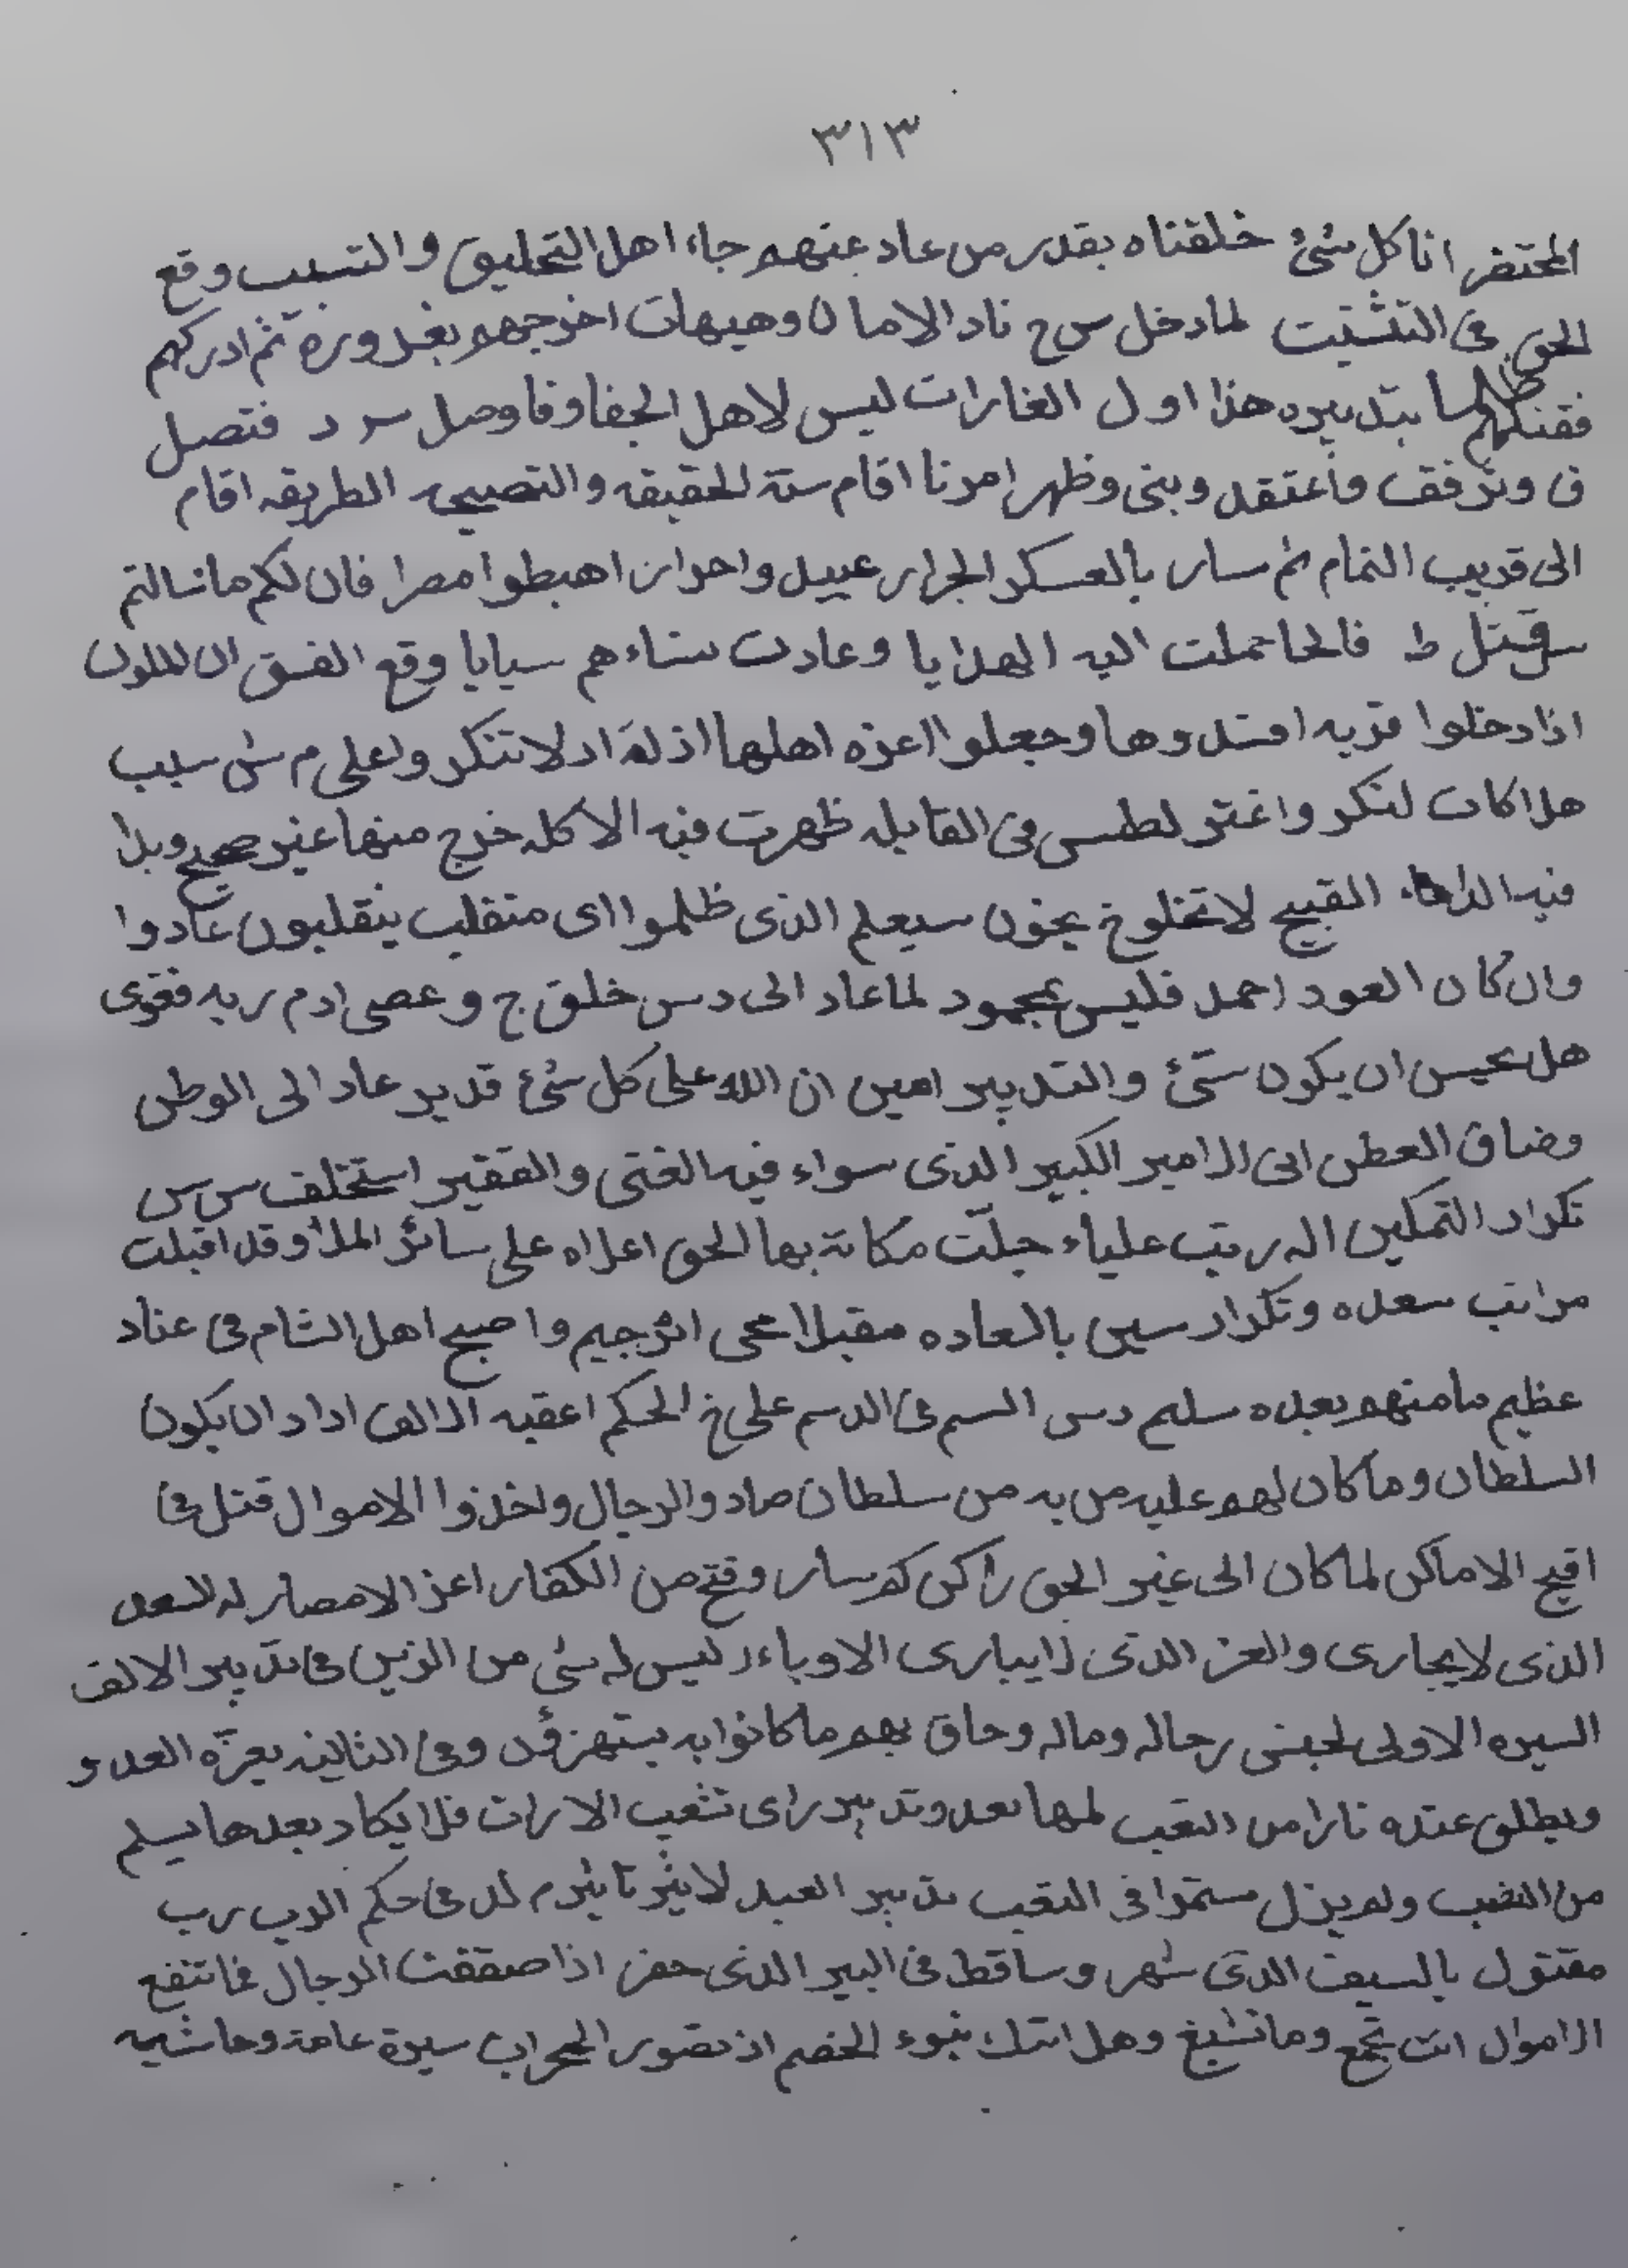 ٣١٣
المحتضر انا كل شئ خلقناه بقدر من عاد عنهم جاء اهل التحليق والتسبب وقع
الحق فى التشتيت لما دخل س ح ناد الامان وهيهات اخرجهم بغد وره ثم ادركهم
بتدبيره هذا اول الغارات ليس لاهل الجفا وفا وصل س د فتصل
ق وترفق واعتقد وبنى وظهر امرنا اقام ستة الحقيقه والتصحيح الطريقه اقام
الى قريب التمام ثم سار بالعسكر الجرار عبيد واحرار اهبطوا مصرا فان لكم ما سالتم
س قتل ط فالحا حملت اليه الهدايا وعادت نساءهم سبايا وقع الفسق ان الملوك
اذا دخلوا قريه افسدوها وجعلوا اعزه اهلها اذلة اد لا تنكر واعلى م ش سبب
هلا كان لنكر واغتر لطس فى القابله ظهرت فيه الاكله خرج منها غير صحيح وبدا
فيه القبيح لا تخلوخ يخون سيعلم الذى ظلموا اى منقلب ينقلبون عادوا
وان كان العود احمد فليس بمحمود لما عاد الى د س خلق ج وعصى ادم ربه فغوى
هل يحسن ان يكون شئ والتدبير امين ان الله على كل شئ قدير عاد الى الوطن
وضاق العطن اتى الامير الكبير الذى سواء فيه الغنى والفقير استخلف س س
تكرار التمكين اله رتب علياء جلت مكانة بها الحق اعلاه على سائر الملأ وقد اقبلت
مراتب سعده وتكرار سين بالسعاده مقبلا محى اثر جيم واصبح اهل الشام فى عناد
عظيم ما منهم بعده سليم دس السم فى الدسم على خ الحكم اعقبه الالف اداد ان يكون
السلطان وما كان لهم عليه من يد من سلطان صاد والرجال واخذوا الاموال قتل فى
اقبح الاماكن لما كان الى غير الحق راكن كم سار وفتح من الكفار اعز الامصار له السعد
الذى لا يجارى والعز الذى لا يبارى الاوباء ليس له شئ من الزين فى تدبير الالف
السيره الاولى لجبنى رجاله وماله وحاق بهم ما كانوا به يستهزؤن وفى الثانيه يعزة العدو
ويطلق عنده نارا من التعب لمها بعد وتدبير راى تتعب الارات فلا يكاد بعدها يسلم
من التعب ولم يزل مستمرا فى التعب تدبير العبد لا يثر تاثير م لد فى حكم الرب رب
مقتول بالسيف الذى شهر وساقط فى البير الذى حفر اذا صفقت الرجال فما تنفع
الاموال انت تجمع وما تشبع وهل اتتك نبوء الخصم اذ تصور المحراب سيرة عامة وحاشيه